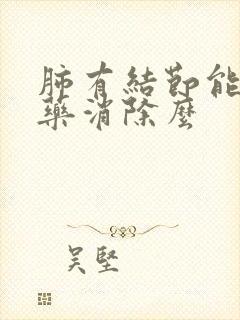 肺有結節能
藥消除麼
吴堅